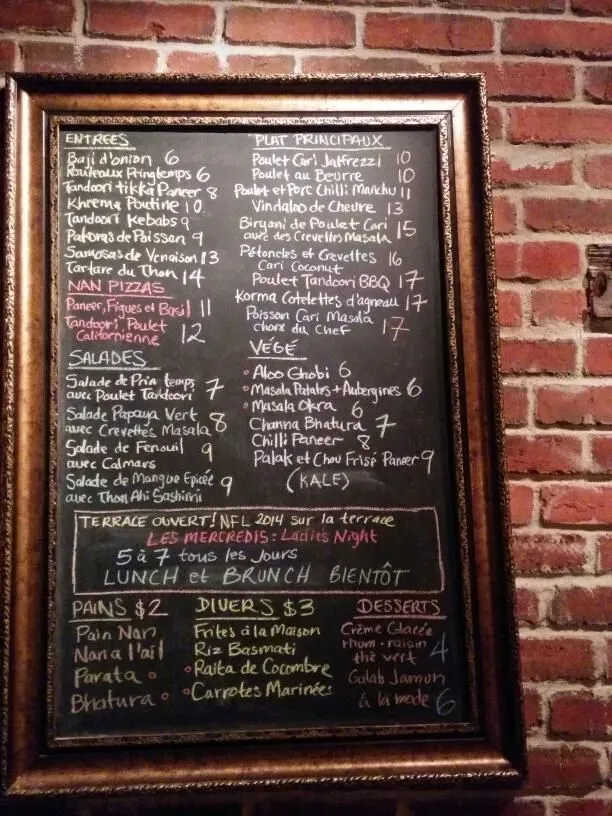 ENTREES
Baji d'onion 6
Rouleaux Printemps 6
Tandoori tikka Paneer 8
Kheema Poutine 10
Tandoori Kebabs 9
Pakoras de Poisson 9
Samosas de Venaison 13
Tartare du Thon 14
NAN PIZZAS
Paneer, Figues et Basil 11
Tandoori Poulet
Californienne 12
SALADES
Salade de Prin temps
avec Poulet Tandoori 7
Salade Papaya Vert
avec Crevettes Masala 8
Salade de Fenouil
avec Calmars 9
Salade de Mangue Epicée
avec Thon Ahi Sashimi 9
PLAT PRINCIPAUX
Poulet Cari Jalfrezzi 10
Poulet au Beurre 10
Poulet et Porc Chilli Manchu 11
Vindaloo de Chevre 13
Biryani de Poulet Cari
avec des Crevettes Masala 15
Pétoncles et Crevettes
Cari Coconut 16
Poulet Tandoori BBQ 17
Korma Cotelettes d'agneau 17
Poisson Cari Masala
choix du Chef 17
VÉGÉ
Aloo Ghobi 6
Masala Patates + Aubergines 6
Masala Okra 6
Channa Bhatura 7
Chilli Paneer 8
Palak et Chou Frisé Paneer 9
(KALE)
TERRACE OUVERT! NFL 2014 sur la terrace
LES MERCREDIS: Ladies Night
5 à 7 tous les Jours
LUNCH et BRUNCH BIENTÔT
PAINS $2
Pain Nan
Nan a l'ail
Parata
Bhatura
DIVERS $3
Frites à la Maison
Riz Basmati
Raita de Cocombre
Carrotes Marinées
DESSERTS
Crème Glacée
rhum + raisin
thé vert 4
Gulab Jamun
à la mode 6